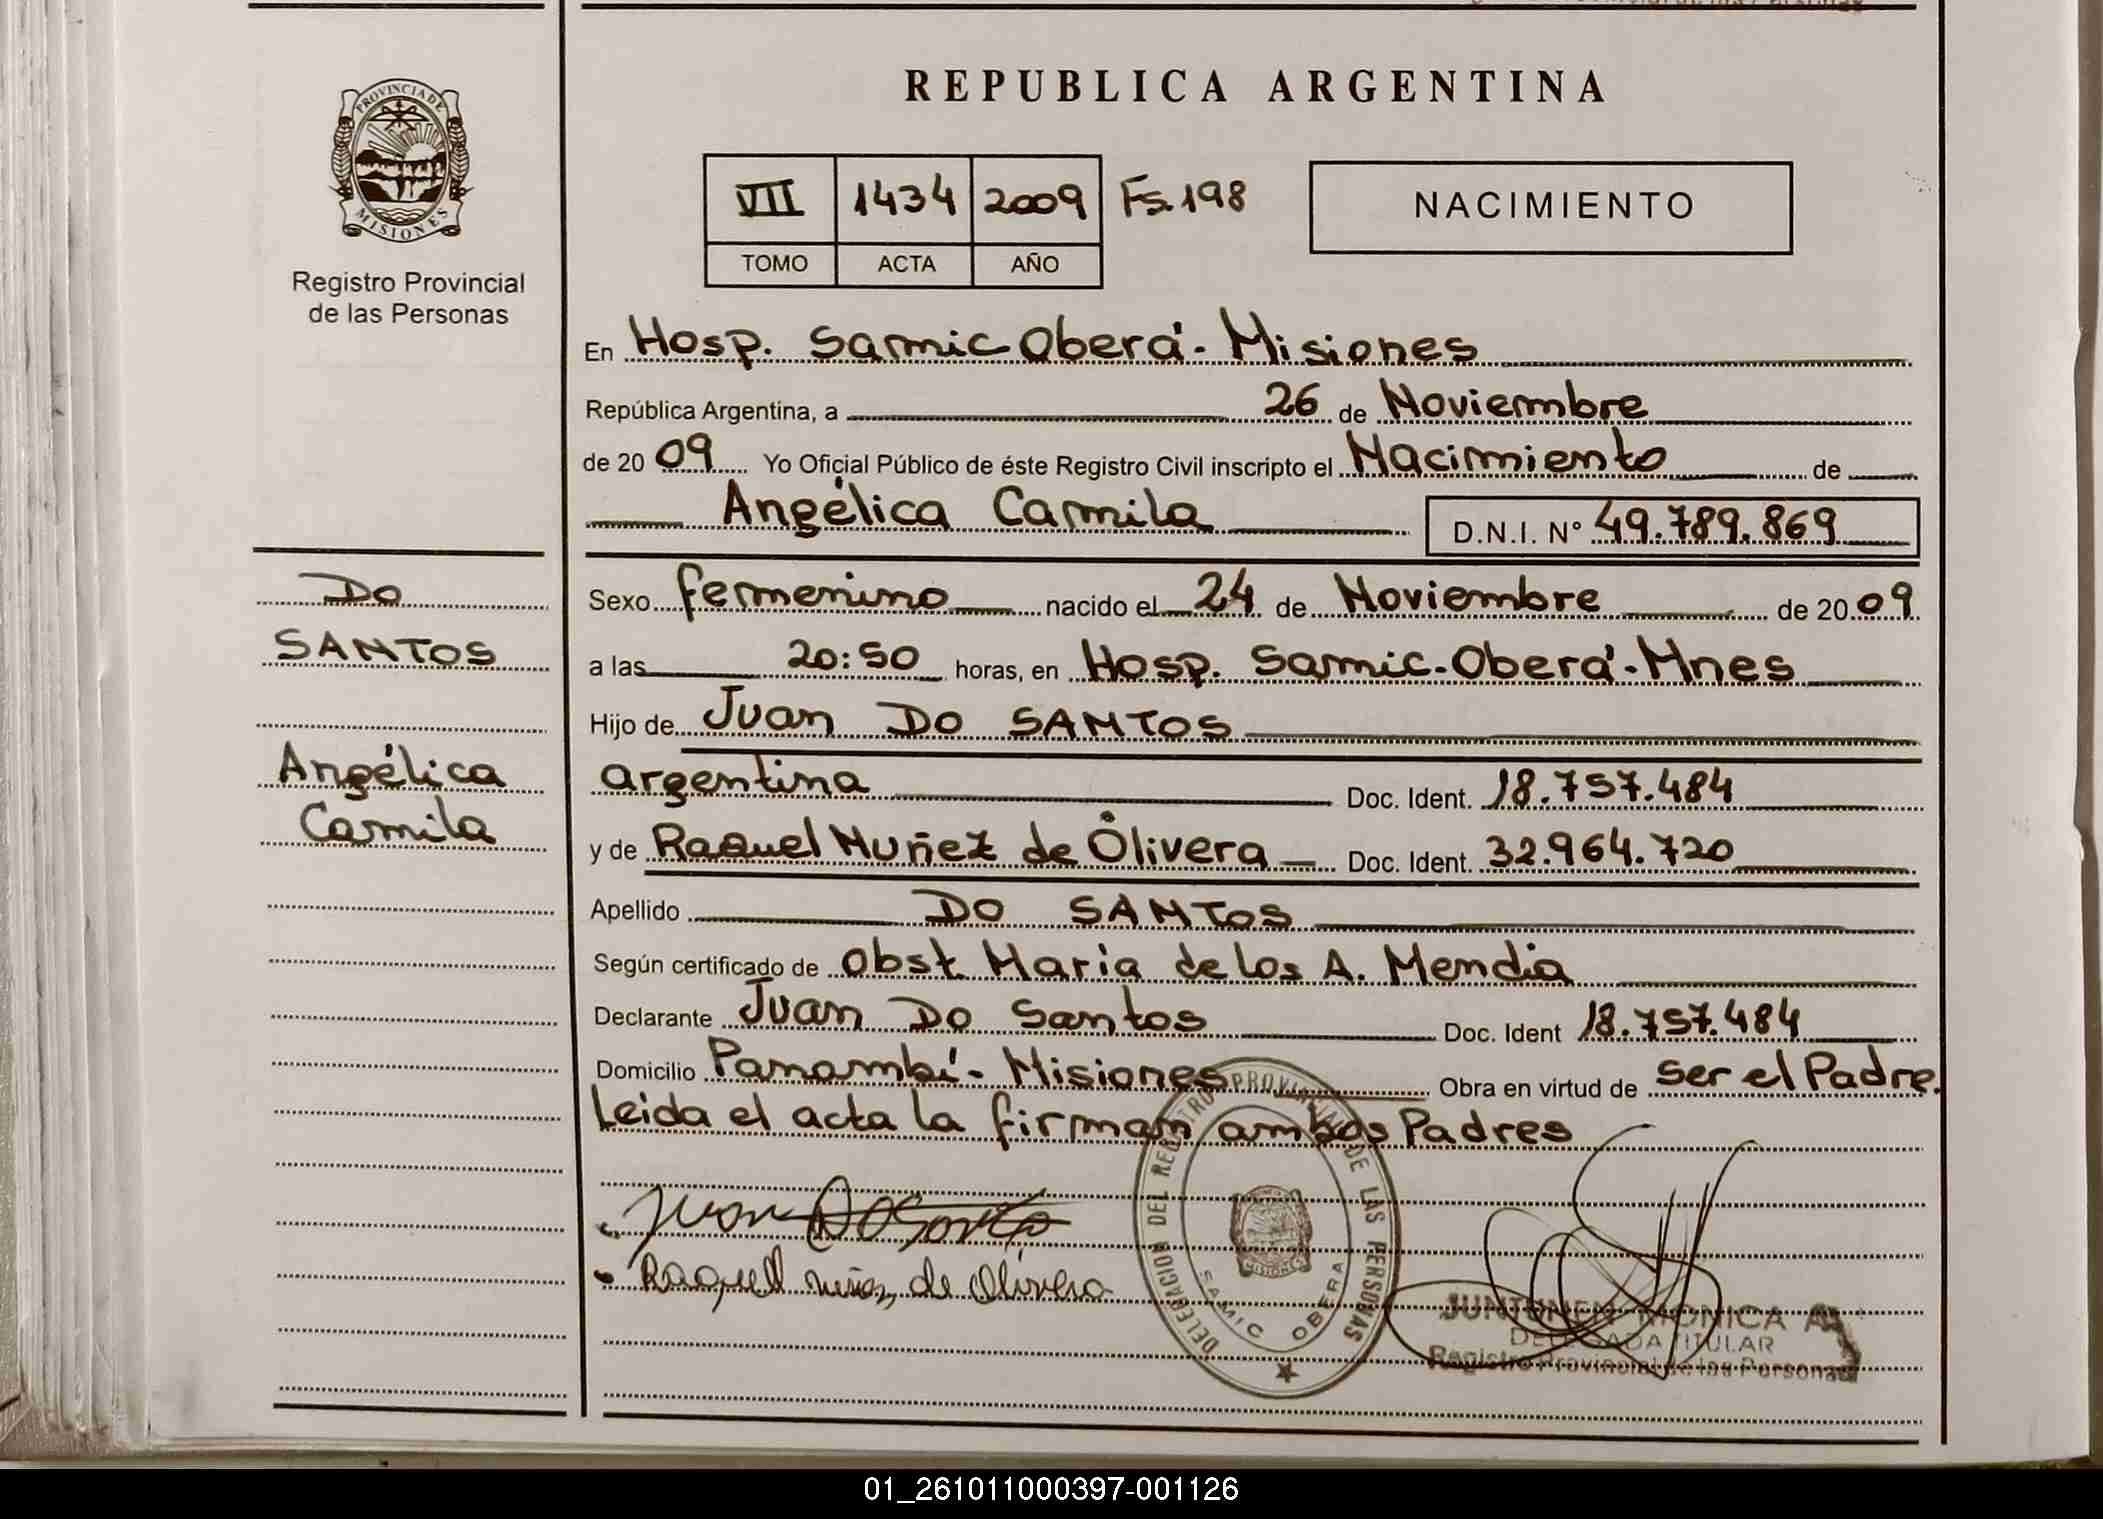 REPUBLICA ARGENTINA
PROVINCIA DE
MISIONES
Registro Provincial
de las Personas
VII 1434 2009 Fs. 198
TOMO ACTA AÑO
NACIMIENTO
En Hosp. Samic Oberá - Misiones
República Argentina, a 26 de Noviembre
de 2009 Yo Oficial Público de éste Registro Civil inscripto el Nacimiento de
Angélica Camila D.N.I. Nº 49.789.869
Do
SANTOS
Angélica
Camila
Sexo femenino nacido el 24 de Noviembre de 2009
a las 20:50 horas, en Hosp. Samic-Oberá-Mnes
Hijo de Juan DO SANTOS
argentina Doc. Ident. 18.757.484
y de Raquel Nuñez de Olivera Doc. Ident. 32.964.720
Apellido DO SANTOS
Según certificado de Obst. Maria de los A. Mendia
Declarante Juan Do Santos Doc. Ident 18.757.484
Domicilio Panambí - Misiones Obra en virtud de ser el Padre.
Leida el acta la firman ambos Padres
Juan Do Santos
Raquel nuñez de Olivera
DELEGACION DEL REGISTRO PROVINCIAL DE LAS PERSONAS
MISIONES
SAMIC OBERA
JUNTUNEN MONICA A.
DELEGADA TITULAR
Registro Provincial de las Personas
01_261011000397-001126